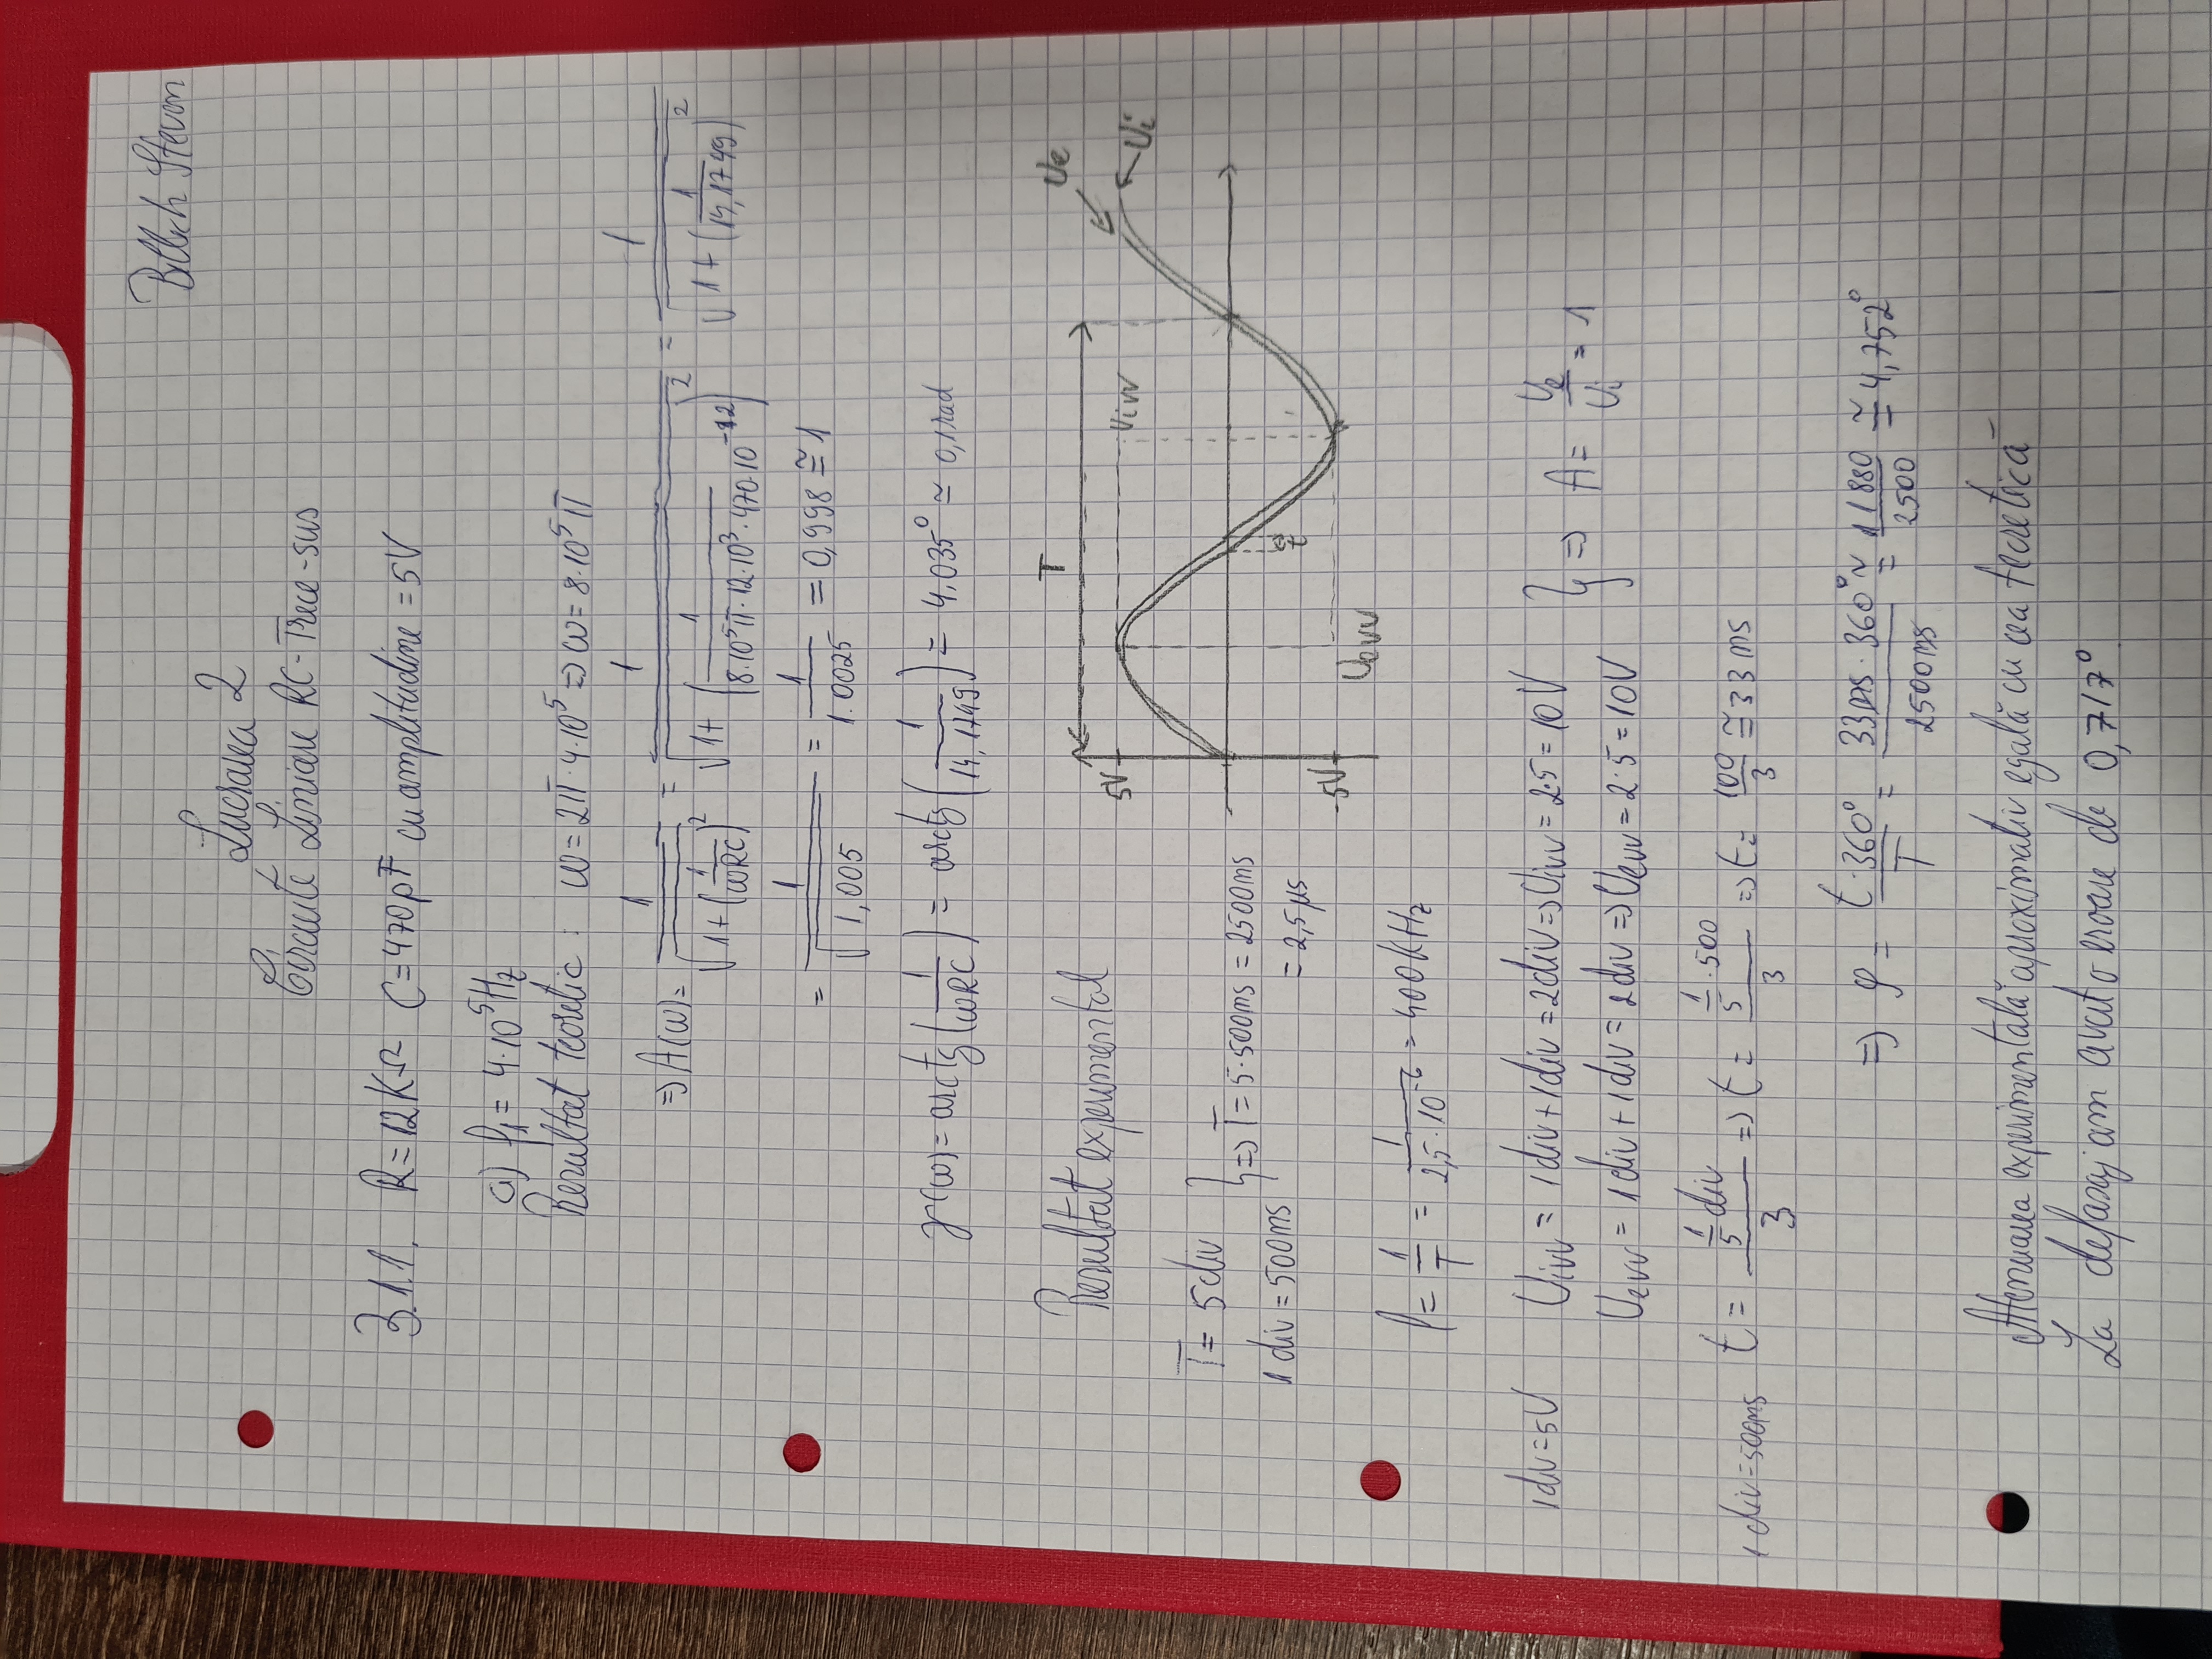 Billich Steven
Lucrarea 2
Circuite Liniare RC-Trece-sus
3.1.1. R=12KΩ C=470pF cu amplitudine =5V
a) f₁= 4·10⁵Hz
Rezultat teoretic : ω=2π·4·10⁵ => ω=8·10⁵π
=> A(ω)= 1/√(1+(1/ωRC)²) = 1/√(1+(1/(8·10⁵π·12·10³·470·10⁻¹²))²) = 1/√(1+(1/14,1749)²)
= 1/√1,005 = 1/1.0025 = 0,998 ≅ 1
φ(ω)= arctg(1/ωRC) = arctg(1/14,1749) = 4.035° ≃ 0,1rad
Rezultat experimental
T
Ue
5V
Uivv
Ui
t
-5V
Uevv
T= 5div
1 div=500ns
} => T=5·500ns = 2500ns
= 2,5μs
f= 1/T = 1/(2,5·10⁻⁶) = 400KHz
1div=5V Uivv = 1div+1div=2div=>Uivv=2·5=10V
Uevv = 1div+1div= 2div => Uevv=2·5=10V
} => A= Ue/Ui = 1
1 div=500ns t= (1/5 div)/3 => t= (1/5·500)/3 => t= 100/3 ≅ 33ns
=> φ= t·360°/T = 33ns·360°/2500ns ≅ 11880/2500 ≅ 4,752°
Atenuarea experimentală aproximativ egală cu cea teoretică
La defasaj am avut o eroare de 0,717°